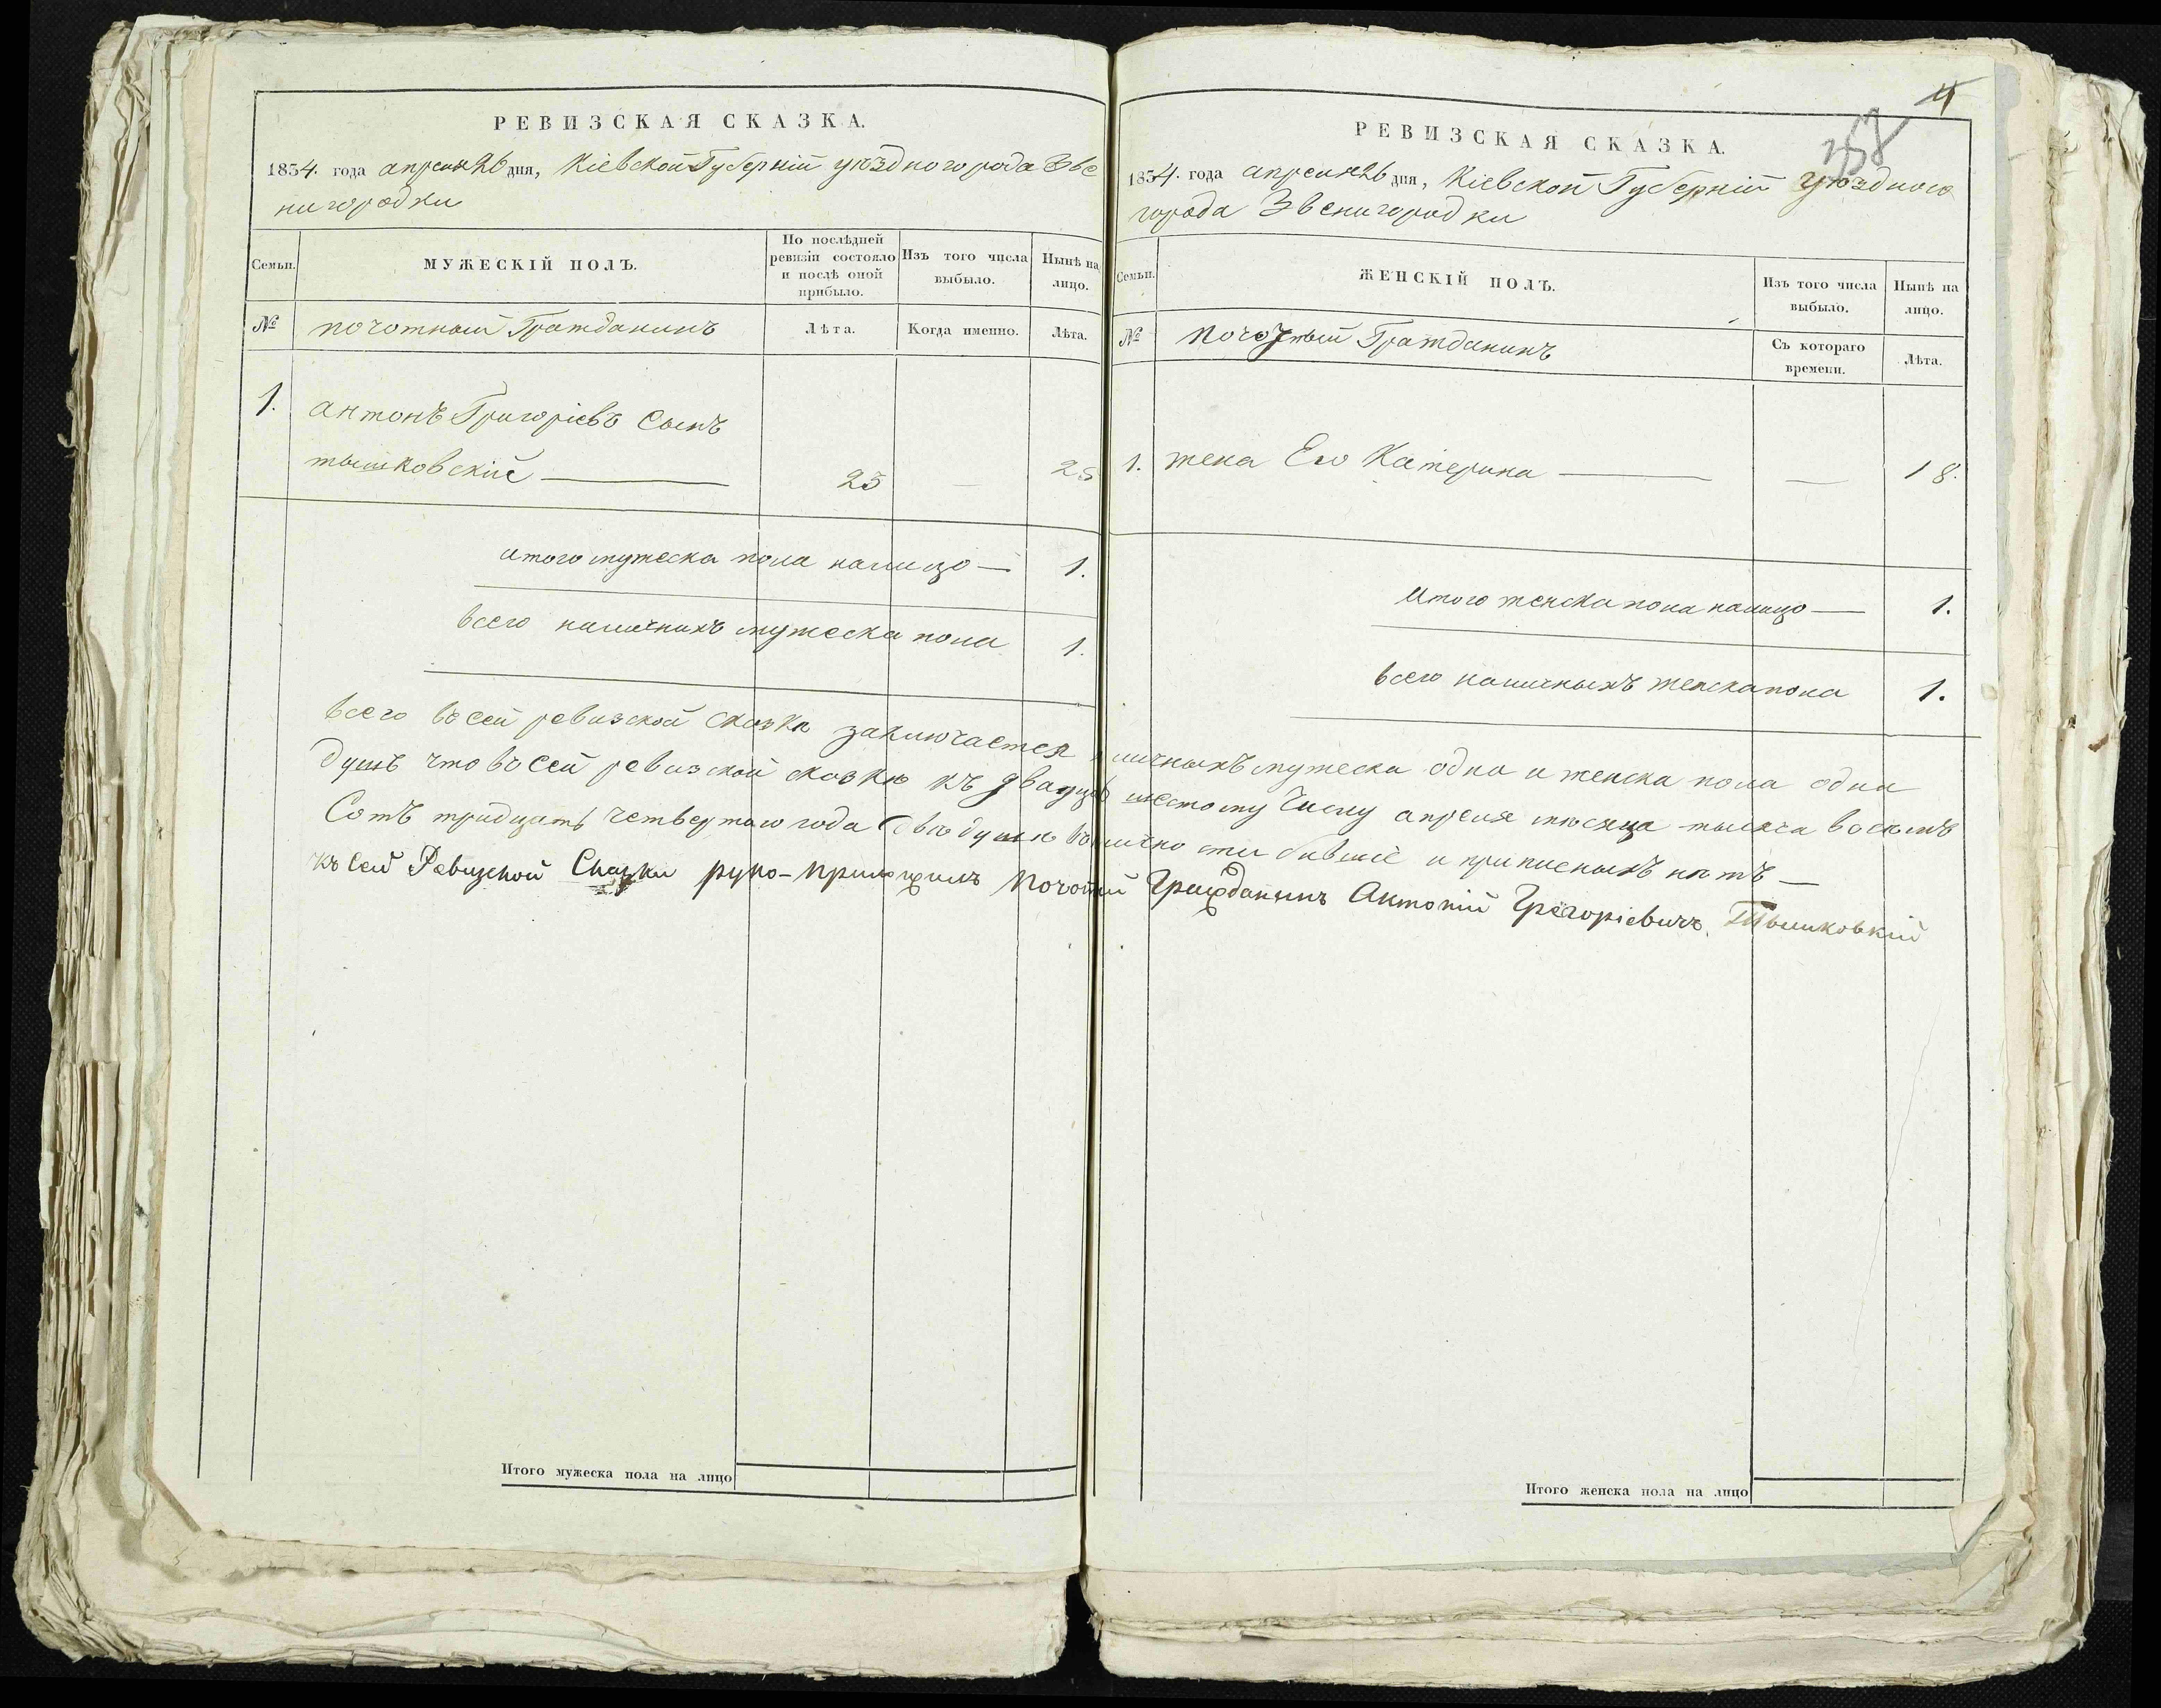 РЕВИЗСКАЯ СКАЗКА.
1834. года апреля 26 дня, Кіевской Губерніи уѣздного рода Звѣ
нигородки
Семьи.
МУЖЕСКІЙ ПОЛЪ.
По послѣдней
ревизіи состояло
и послѣ оной
прибыло.
Изъ того числа
выбыло.
Нынѣ на
лицо.
№
почотный Гражданинъ
Лѣта.
Когда именно.
Лѣта.
1. антонъ Григоріевъ Сынъ
тышковскій — 23 — 25
итого мужеска пола налицо — 1.
всего наличныхъ мужеска пола 1.
4
358
РЕВИЗСКАЯ СКАЗКА.
1834. года апреля 26 дня, Кіевской Губерніи уѣздного
города Звенигородки
Семьи.
ЖЕНСКІЙ ПОЛЪ.
Изъ того числа
выбыло.
Нынѣ на
лицо.
№
почотный Гражданинъ
Съ котораго
времени.
Лѣта.
1. жена Его Катерина — — 18.
Итого женска пола налицо — 1.
всего наличныхъ женска пола 1.
всего въ сей ревизской сказки заключается наличныхъ мужеска одна и женска пола одна
душъ что въ сей ревизской сказкѣ къ двадцать шестому Числу апреля мѣсяца тысяча восемъ
Сотъ тридцать четвертого года двѣ душѣ бывшіе и приписныхъ нѣтъ —
къ Сей Ревизской Сказки руко-приложилъ Почотный Гражданинъ Антоній Грегоріевичъ Тышковкій
Итого мужеска пола на лицо
Итого женска пола на лицо